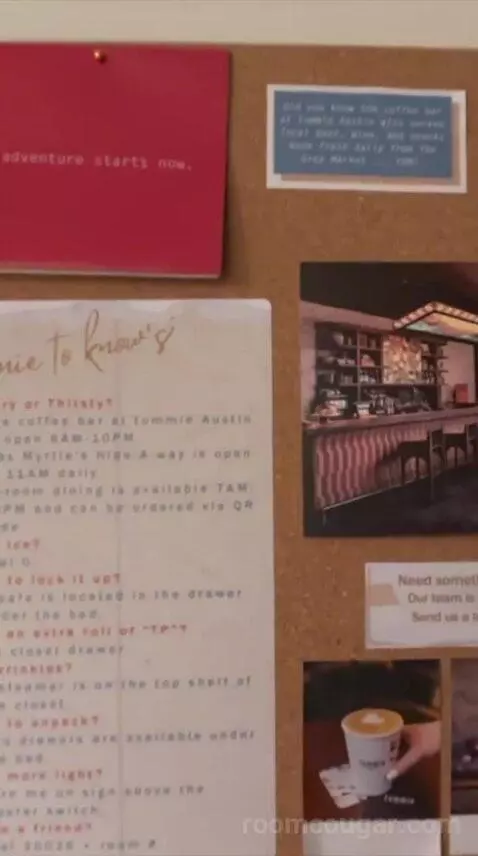 adventure starts now.
Did you know the coffee bar
at tommie Austin also serves
local beer, wine, and snacks
made fresh daily from the
mie to know's
ry or Thirsty?
coffee bar at tommie Austin
open 6AM-10PM
as Myrtle's Hide A-way is open
11AM daily
-room dining is available 7AM
PM and can be ordered via QR
de
ice?
to lock it up?
safe is located in the drawer
der the bed.
an extra roll of "TP"?
closet drawer
wrinkles?
steamer is on the top shelf of
e closet.
to unpack?
drawers are available under
e bed.
more light?
me on sign above the
switch.
e a friend?
+ room #
Need somet
Our team is
Send us a t
tommie
roomcougar.com